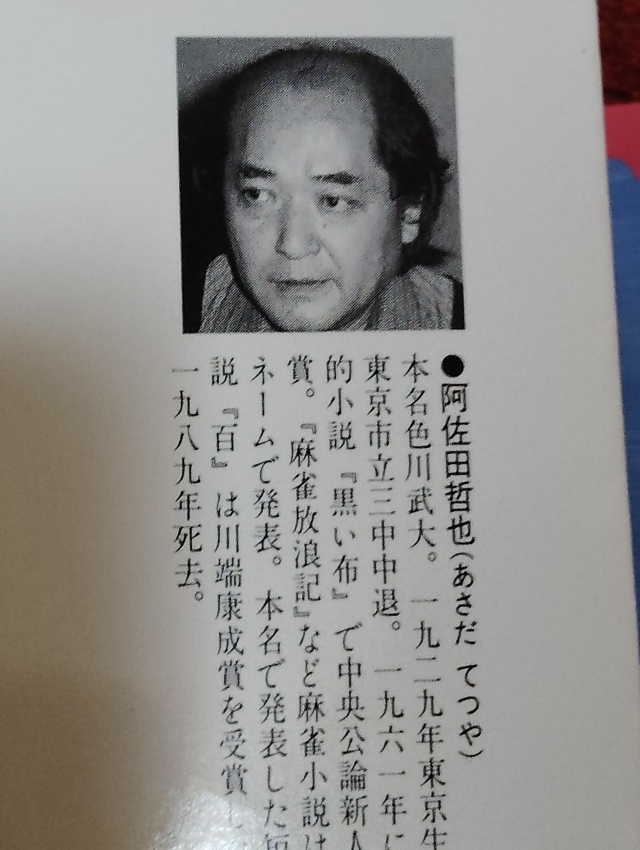 ●阿佐田哲也(あさだ てつや)
本名色川武大。一九二九年東京生
東京市立三中中退。一九六一年に
的小説『黒い布』で中央公論新人
賞。『麻雀放浪記』など麻雀小説は
ネームで発表。本名で発表した短
説『百』は川端康成賞を受賞し
一九八九年死去。